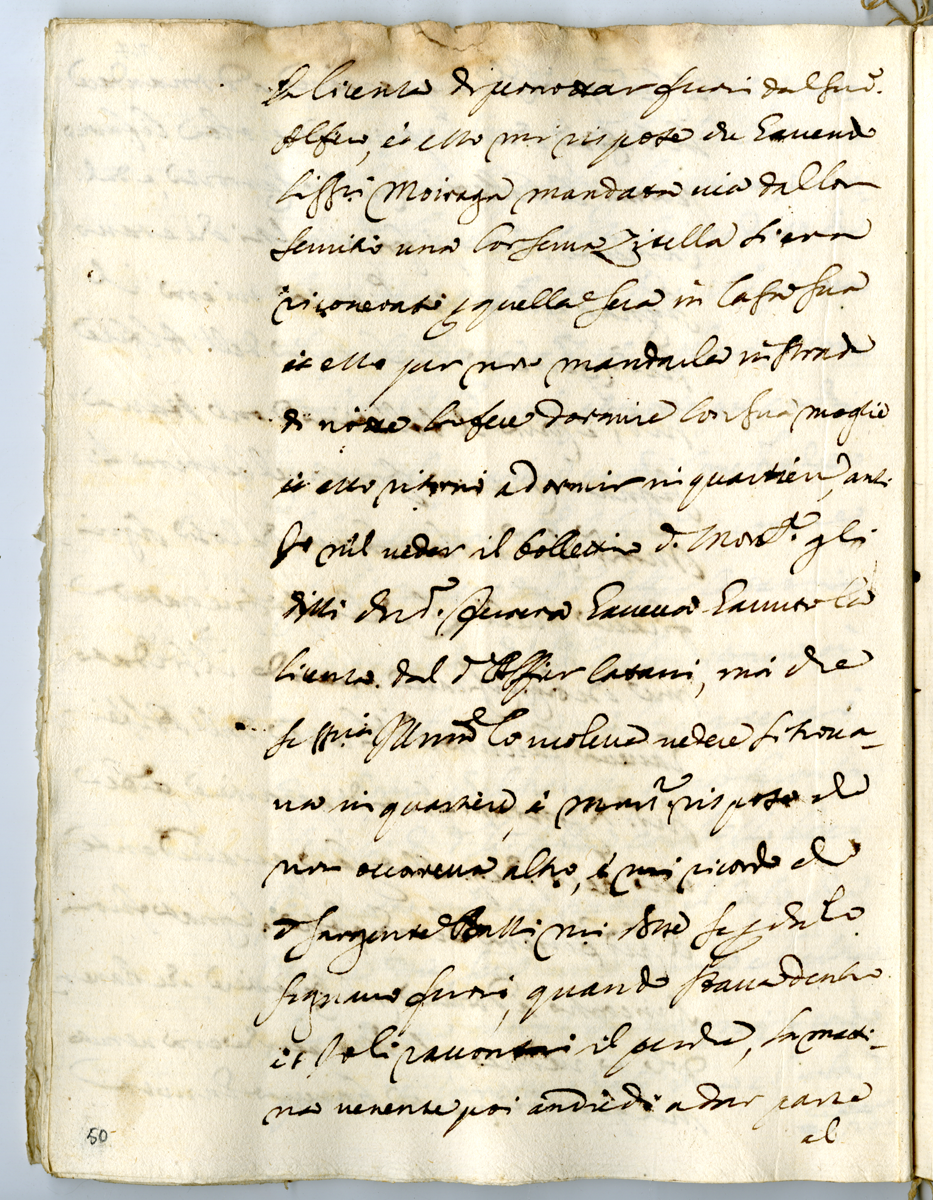 la licenza di pernottar fuori dal suo
Alfier, et esso mi rispose che havendo
li SSri Moiraga mandata via dal lor
servitio una lor serva Zitella si era
ricoverata quella sera in casa sua
et esso per non mandarla in strada
di notte la fece dormire con sua moglie
et esso ritornò a dormir in quartiere, anzi
Io nel veder il bollettino d. Mor.te gli
dissi che haveva havuto la
licenza dal d.o Alfier Catani, mà che
se lo voleva vedere si trova-
va in quartiere, è rispose che
non occorreva altro, è mi ricordo che
il d.o Sargente Batti mi disse se perche lo
segnavo fuori, quando stava dentro
et Io li raccontai il perche, la matti-
na venente poi andiedi a dar parte
al
50